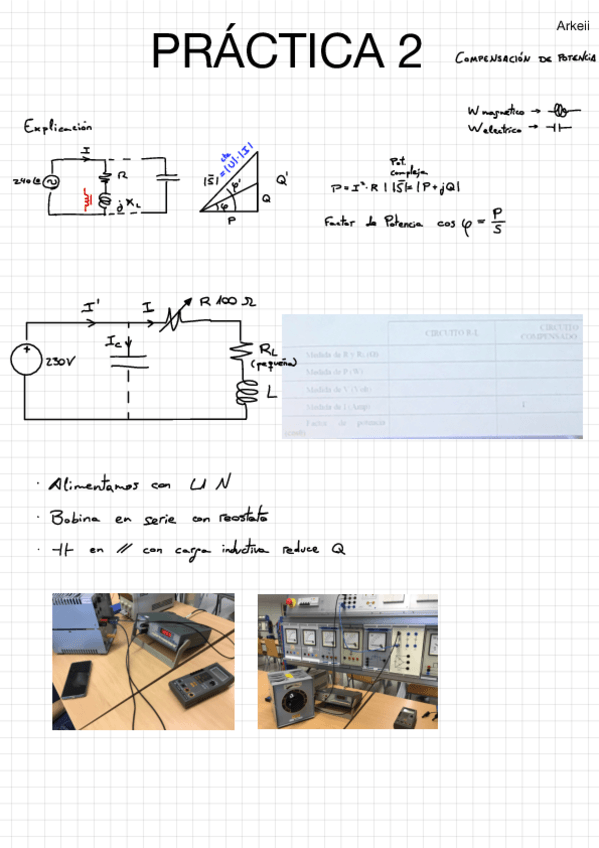 Arkeii
PRÁCTICA 2
COMPENSACIÓN DE POTENCIA
W magnético →
W eléctrico →
Explicación
I
R
j X_L
|S̄| = cte = |U|·|I|
Q'
Q
φ'
φ
P
Pot. compleja
P = I²·R | |S̄| = |P + jQ|
Factor de Potencia cos φ = P/S
I'
I
R 100 Ω
I_C
230V
R_L
(pequeña)
L
CIRCUITO R-L
CIRCUITO COMPENSADO
Medida de R y R_L (Ω)
Medida de P (W)
Medida de V (Volt)
Medida de I (Amp)
Factor de potencia
· Alimentamos con L1 N
· Bobina en serie con reostato
· ⊣⊢ en // con carga inductiva reduce Q